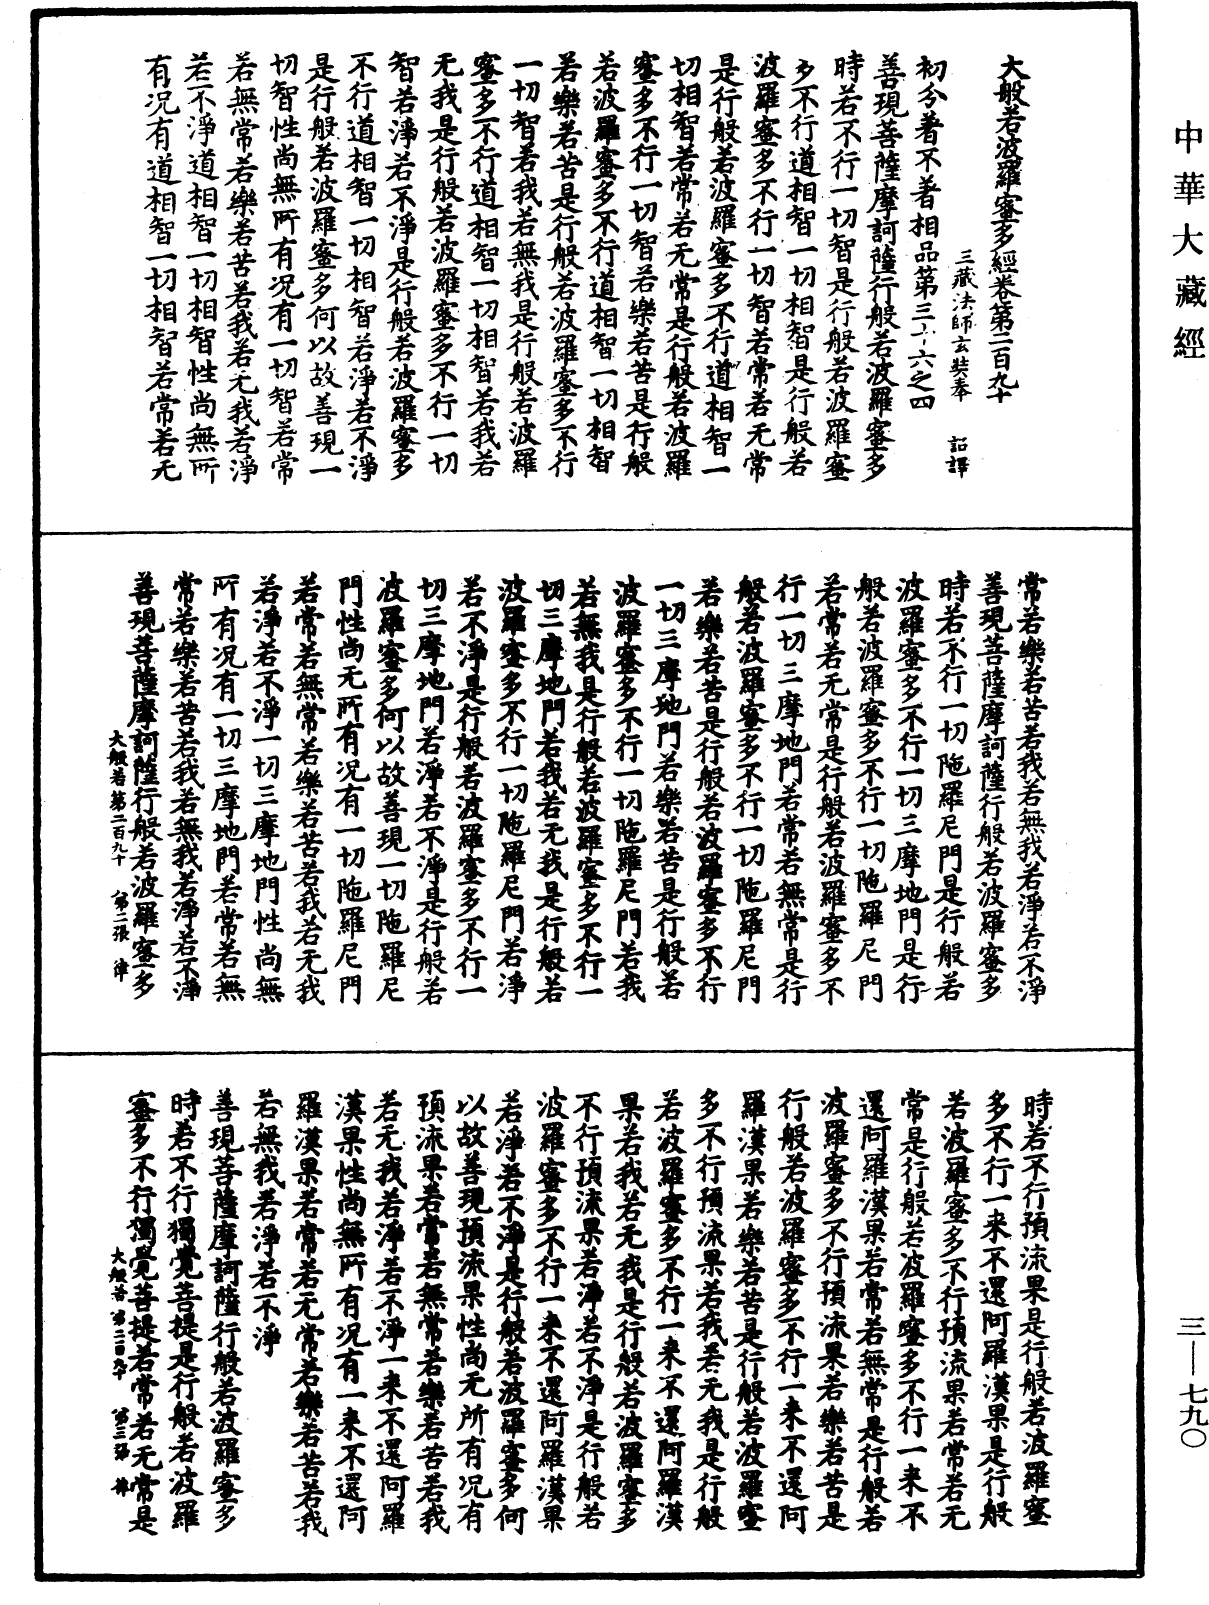 中華大藏經
大般若波羅蜜多經卷第二百九十
三藏法師玄奘奉 詔譯
初分著不著相品第三十六之四
善現菩薩摩訶薩行般若波羅蜜多
時若不行一切智是行般若波羅蜜
多不行道相智一切相智是行般若
波羅蜜多不行一切智若常若无常
是行般若波羅蜜多不行道相智一
切相智若常若无常是行般若波羅
蜜多不行一切智若樂若苦是行般
若波羅蜜多不行道相智一切相智
若樂若苦是行般若波羅蜜多不行
一切智若我若無我是行般若波羅
蜜多不行道相智一切相智若我若
无我是行般若波羅蜜多不行一切
智若淨若不淨是行般若波羅蜜多
不行道相智一切相智若淨若不淨
是行般若波羅蜜多何以故善現一
切智性尚無所有况有一切智若常
若無常若樂若苦若我若无我若淨
若不淨道相智一切相智性尚無所
有况有道相智一切相智若常若无
常若樂若苦若我若無我若淨若不淨
善現菩薩摩訶薩行般若波羅蜜多
時若不行一切陁羅尼門是行般若
波羅蜜多不行一切三摩地門是行
般若波羅蜜多不行一切陁羅尼門
若常若无常是行般若波羅蜜多不
行一切三摩地門若常若無常是行
般若波羅蜜多不行一切陁羅尼門
若樂若苦是行般若波羅蜜多不行
一切三摩地門若樂若苦是行般若
波羅蜜多不行一切陁羅尼門若我
若無我是行般若波羅蜜多不行一
切三摩地門若我若无我是行般若
波羅蜜多不行一切陁羅尼門若淨
若不淨是行般若波羅蜜多不行一
切三摩地門若淨若不淨是行般若
波羅蜜多何以故善現一切陁羅尼
門性尚无所有况有一切陁羅尼門
若常若無常若樂若苦若我若无我
若淨若不淨一切三摩地門性尚無
所有况有一切三摩地門若常若無
常若樂若苦若我若無我若淨若不淨
善現菩薩摩訶薩行般若波羅蜜多
大般若第二百九十 第二張
時若不行預流果是行般若波羅蜜
多不行一来不還阿羅漢果是行般
若波羅蜜多不行預流果若常若无
常是行般若波羅蜜多不行一来不
還阿羅漢果若常若無常是行般若
波羅蜜多不行預流果若樂若苦是
行般若波羅蜜多不行一来不還阿
羅漢果若樂若苦是行般若波羅蜜
多不行預流果若我若无我是行般
若波羅蜜多不行一来不還阿羅漢
果若我若无我是行般若波羅蜜多
不行預流果若淨若不淨是行般若
波羅蜜多不行一来不還阿羅漢果
若淨若不淨是行般若波羅蜜多何
以故善現預流果性尚无所有况有
預流果若常若無常若樂若苦若我
若无我若淨若不淨一来不還阿羅
漢果性尚無所有况有一来不還阿
羅漢果若常若无常若樂若苦若我
若無我若淨若不淨
善現菩薩摩訶薩行般若波羅蜜多
時若不行獨覺菩提是行般若波羅
蜜多不行獨覺菩提若常若无常是
大般若第二百九十 第三張
三—七九〇